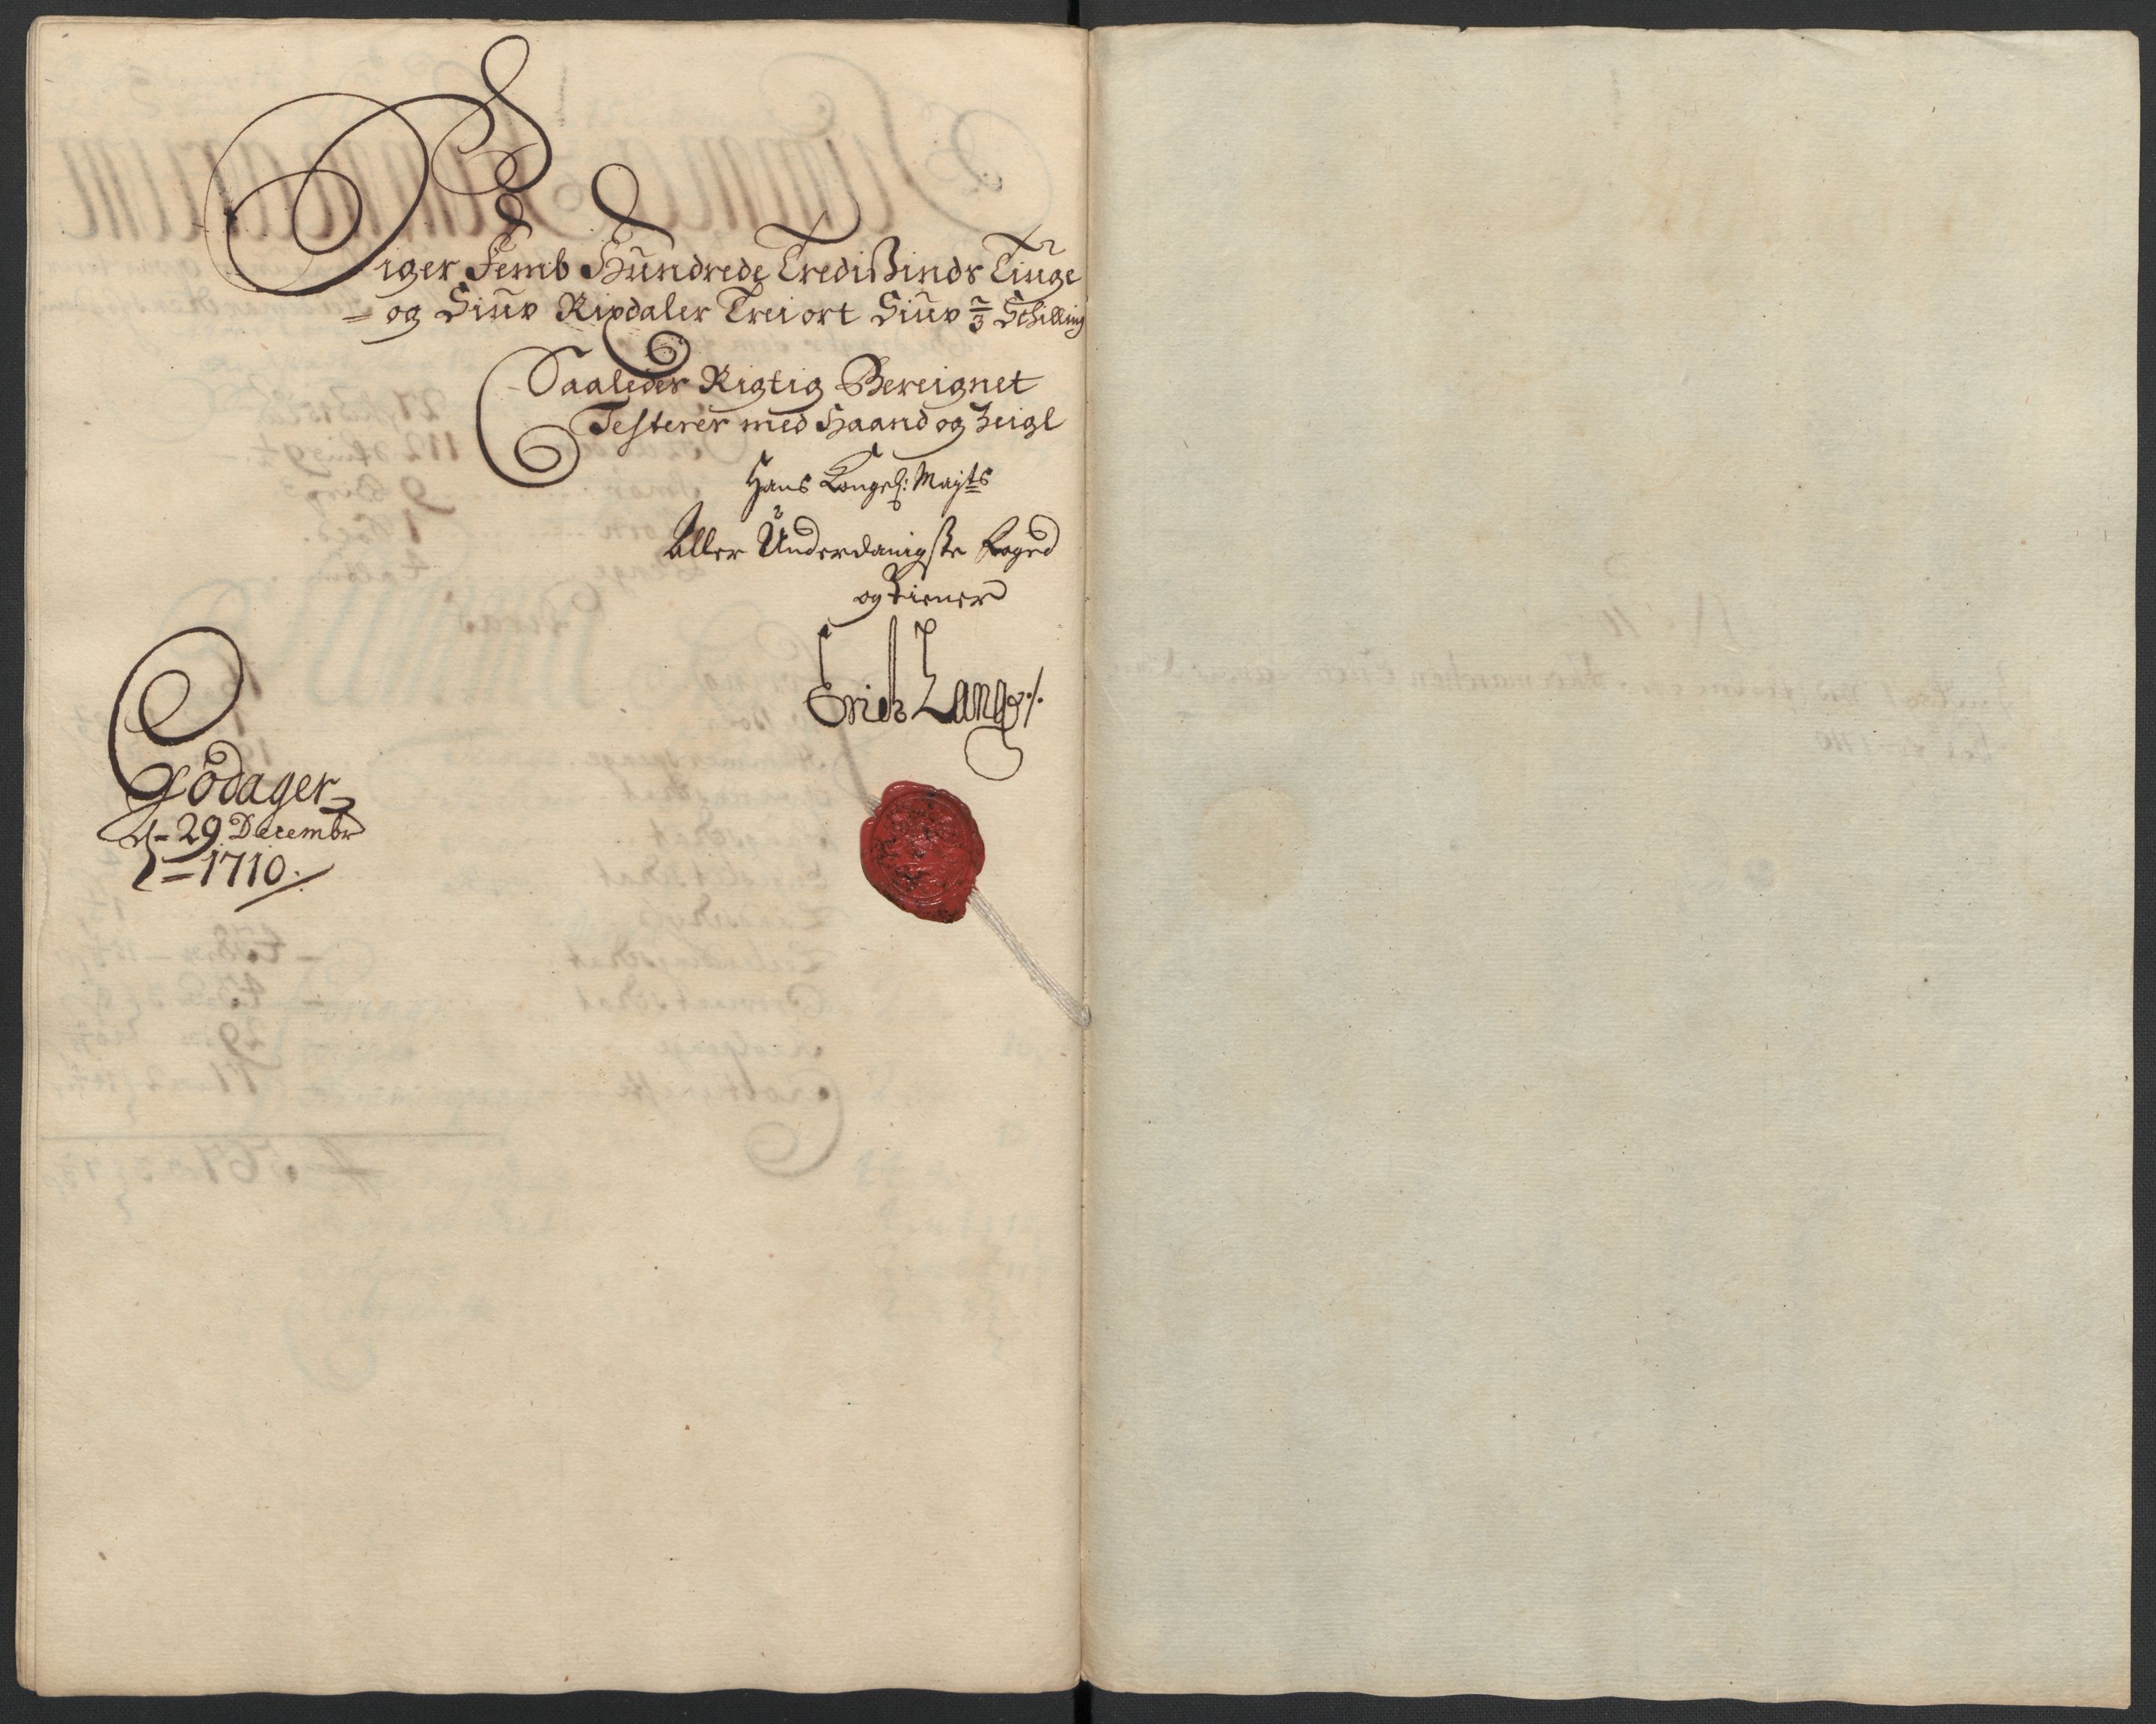 Siger Femb Hundrede Tredißinds Tiuge
= og Siuv Rixdaler Treiort Siuv 2/3 Schilling
Saaledes Rigtig Bereignet
Testerer med Haand og Zeigl
Hans Kongel: Mayts
Aller Underdanigste Foged
og Tiener
Erich Lange ./.
Godager
d- 29 Decembr
= 1710.